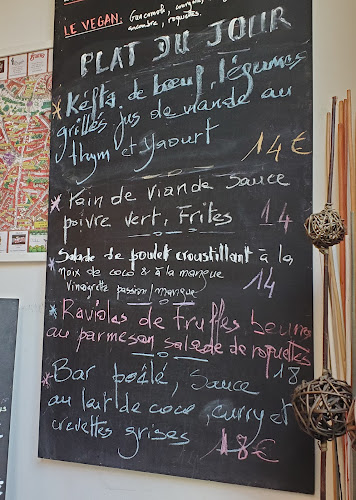 LE VEGAN: Guacamole,
roquettes.
PLAT DU JOUR
* Kefta de bœuf, légumes
grillés jus de viande au
thym et Yaourt 14€
* Pain de viande Sauce
poivre vert, Frites 14
Salade de poulet croustillant à la
* noix de coco & à la mangue
vinaigrette passion/mangue 14
* Raviolas de truffes
au parmesan salade de roquettes
18
* Bar poêlé, Sauce
au lait de coco, curry et
crevettes grises 18€